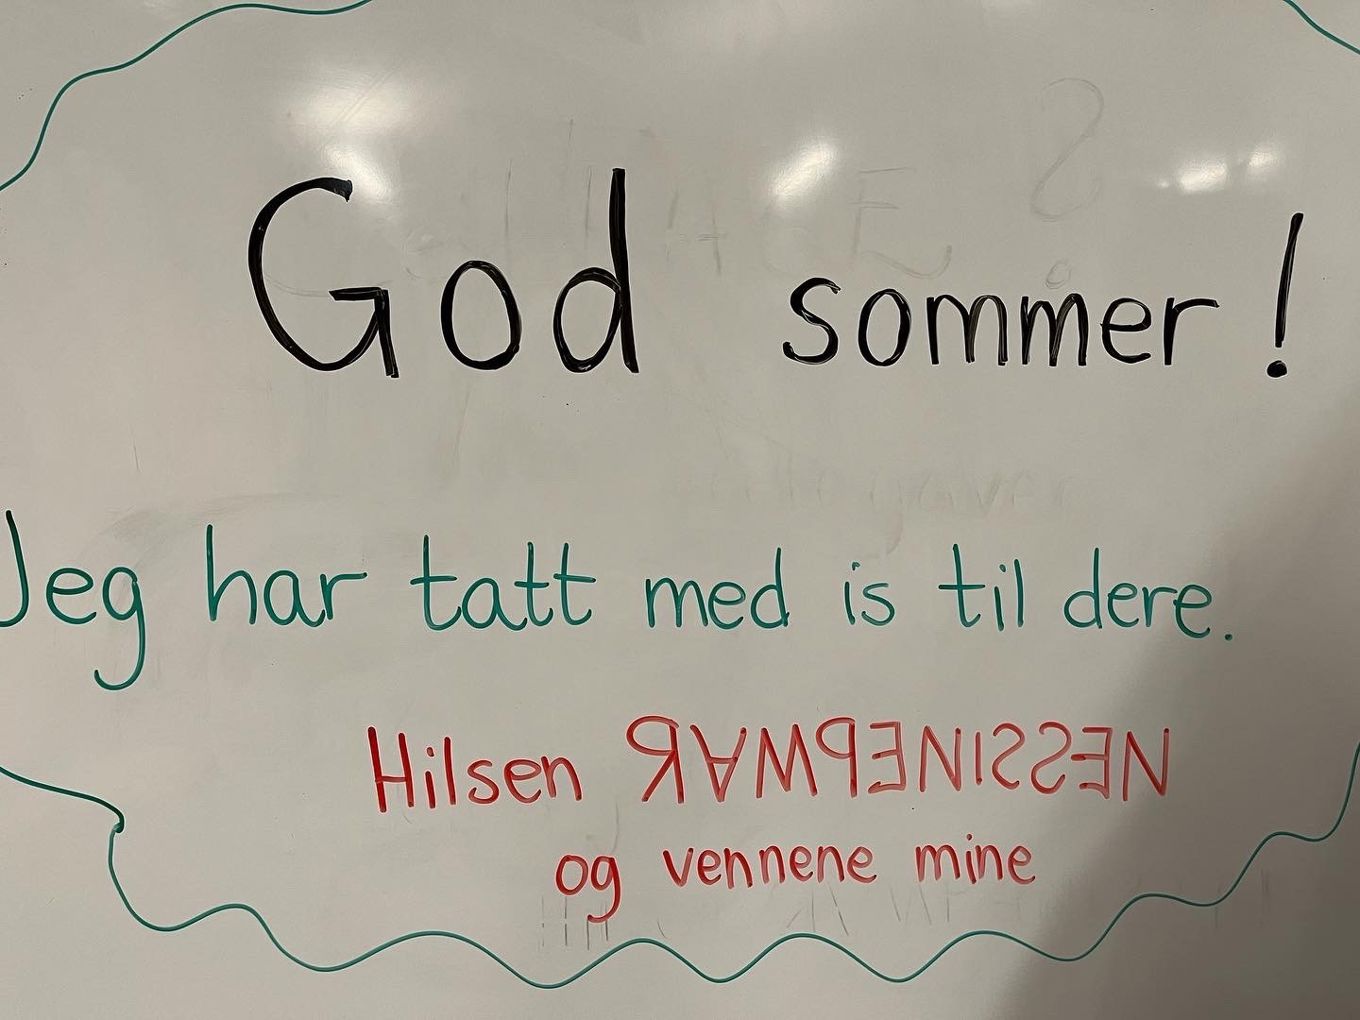 God sommer!
Jeg har tatt med is til dere.
Hilsen RAMPENISSEN
og vennene mine